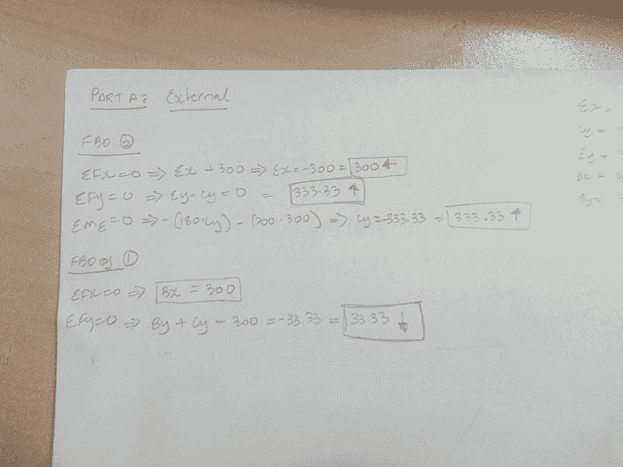 PART A: External
FBD ②
ΣFx=0 => Ex +300 => Ex=-300 = 300 ←
ΣFy=0 => Ey-Cy=0 = 333.33 ↑
ΣME=0 => -(180·Cy) - (200·300) => Cy=-333.33 = 333.33 ↑
FBD of ①
ΣFx=0 => Bx = 300
ΣFy=0 => By + Cy - 300 = -33.33 = 33.33 ↓
Ex =
Cy =
Ey =
Bx =
By =